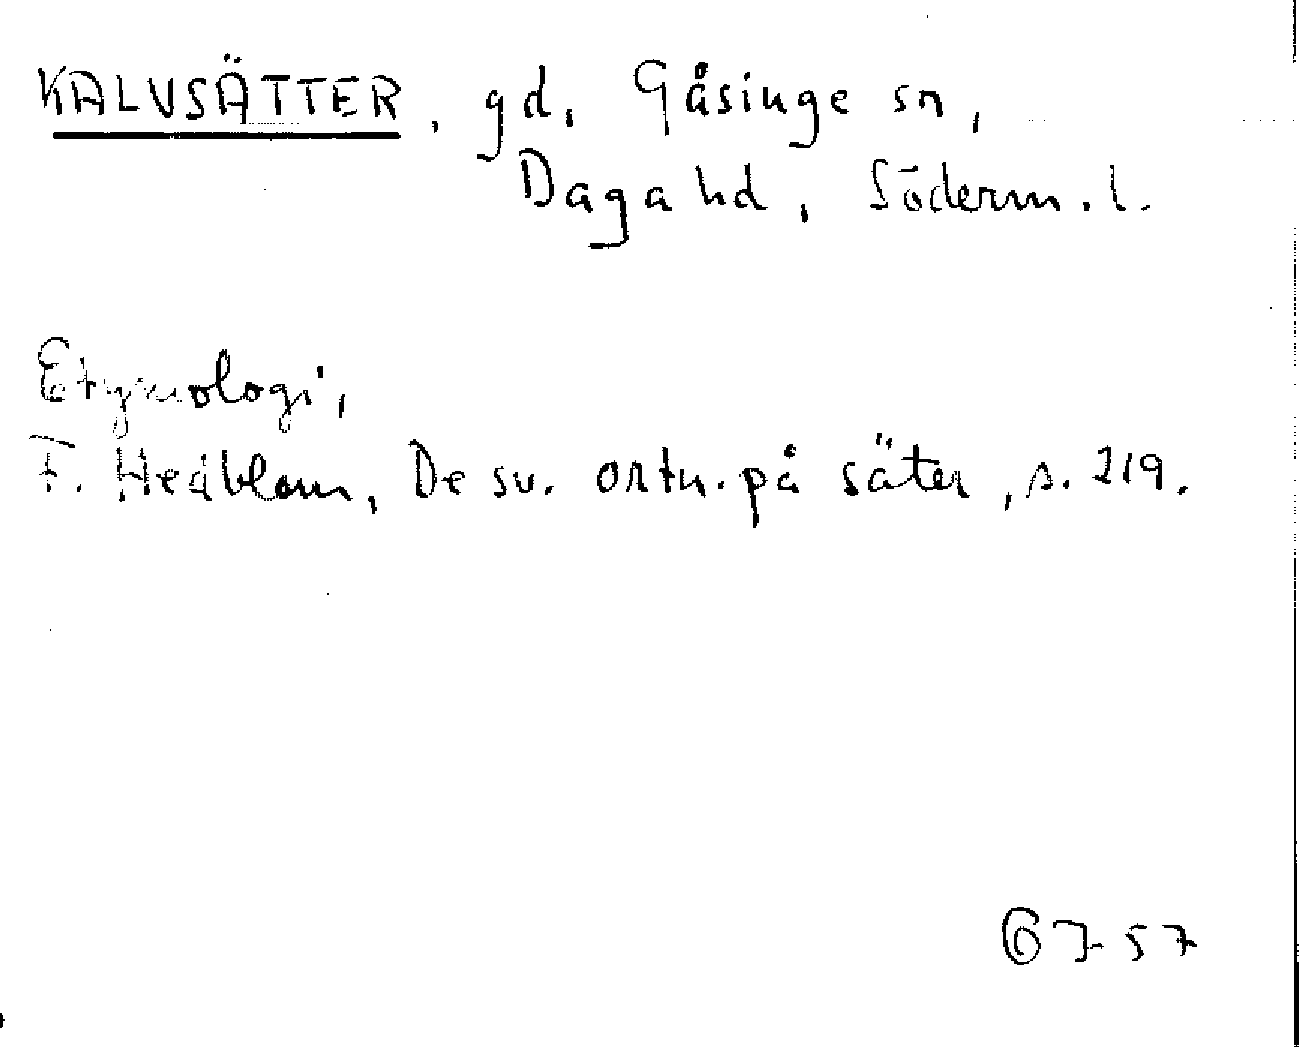 KALVSÄTTER, gd, Gåsinge sn,
Daga hd, Söderm.l.
Etymologi,
F. Hedblom, De sv. ortn. på säter, s. 219.